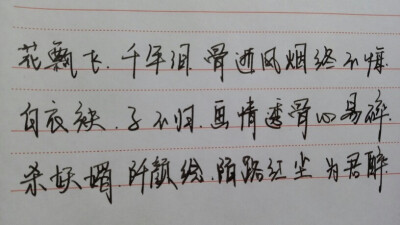 花飘飞.千年泪.骨逝风烟终不悔.
白衣袂.子不归.画情透骨心易碎.
杀妖媚.阡颜绘.陌路红尘为君醉.